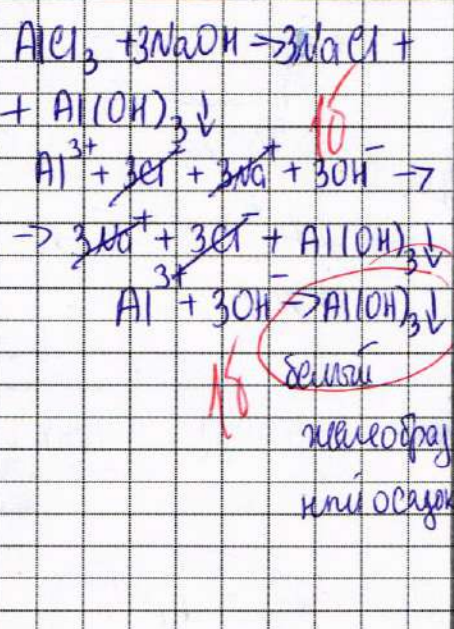 AlCl₃ + 3NaOH → 3NaCl +
+ Al(OH)₃↓
1б
Al³⁺ + 3Cl⁻ + 3Na⁺ + 3OH⁻ →
→ 3Na⁺ + 3Cl⁻ + Al(OH)₃↓
Al³⁺ + 3OH⁻ → Al(OH)₃↓
1б
белый
желеобраз
ный осадок